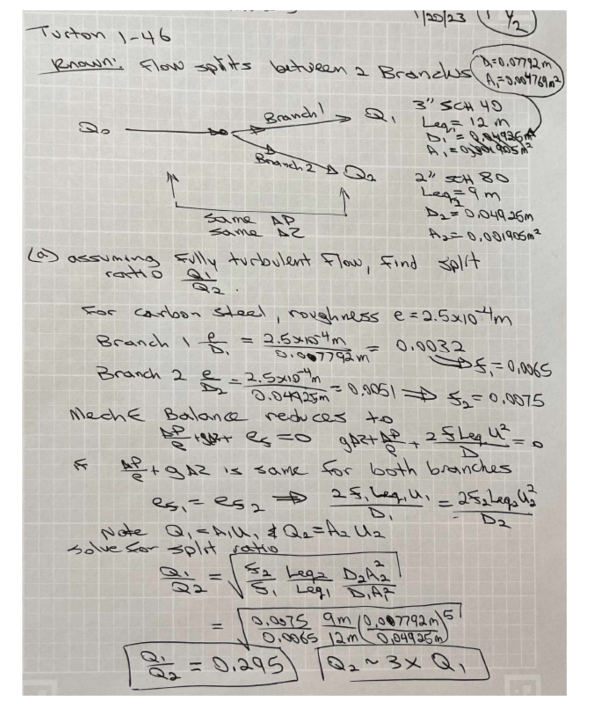 1/20/23 (1 1/2)
Turton 1-46
Known: Flow splits between 2 Branches
D₁=0.07792m
A₁=0.004769m²
Q₀ Branch 1 Q₁
3" SCH 40
Leq₁= 12 m
D₁ = 0.04926m
A₁ = 0.001905m²
Branch 2 Q₂
2" SCH 80
Leq₂= 9 m
D₂= 0.04925m
A₂= 0.001905m²
Same ΔP
Same ΔZ
(a) assuming fully turbulent flow, find split
ratio Q₁/Q₂.
For carbon steel, roughness e = 2.5x10⁻⁴m
Branch 1 e/D₁ = 2.5x10⁻⁴m/0.07792m = 0.0032
⇒ f₁=0.0065
Branch 2 e/D₂ = 2.5x10⁻⁴m/0.04925m = 0.0051 ⇒ f₂=0.0075
Mech E Balance reduces to
ΔP/ρ + gΔZ + e_f = 0 gΔZ + ΔP/ρ + 2 f Leq U²/D = 0
& ΔP/ρ + gΔZ is same for both branches
e_f₁ = e_f₂ ⇒ 2f₁ Leq₁ U₁/D₁ = 2f₂ Leq₂ U₂²/D₂
Note Q₁ = A₁U₁ & Q₂ = A₂U₂
solve for split ratio
Q₁/Q₂ = √(f₂/f₁ Leq₂/Leq₁ D₂A₂²/D₁A₁²)
= √(0.0075/0.0065 9m/12m (0.007792m/0.04925m)⁵)
Q₁/Q₂ = 0.295 Q₂ ~ 3 x Q₁